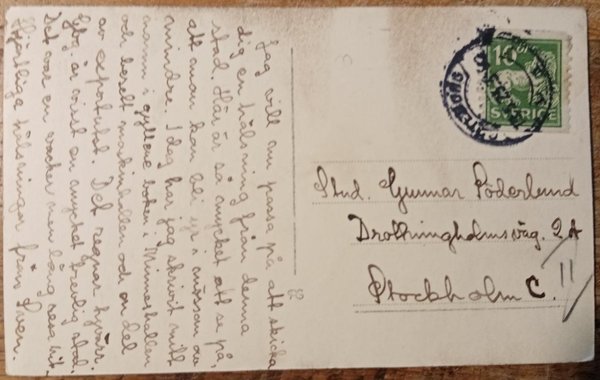 Jag vill nu passa på att skicka
dig en hälsning från denna
stad. Här är så mycket att se på,
att man kan bli yr i mössan av
mindre. I dag har jag skrivit mitt
namn i gyllene boken i Minneshallen
och besett maskinhallen och en del
av exportutst. Det regnar tyvärr.
Gbg är visst en mycket trevlig stad.
Det var en vacker men lång resa hit.
Hjärtliga hälsningar från Sven.
10
SVERIGE
GÖTEBORG
Stud. Gunnar Söderlund
Drottningholmsväg. 2 A
Stockholm C.
11